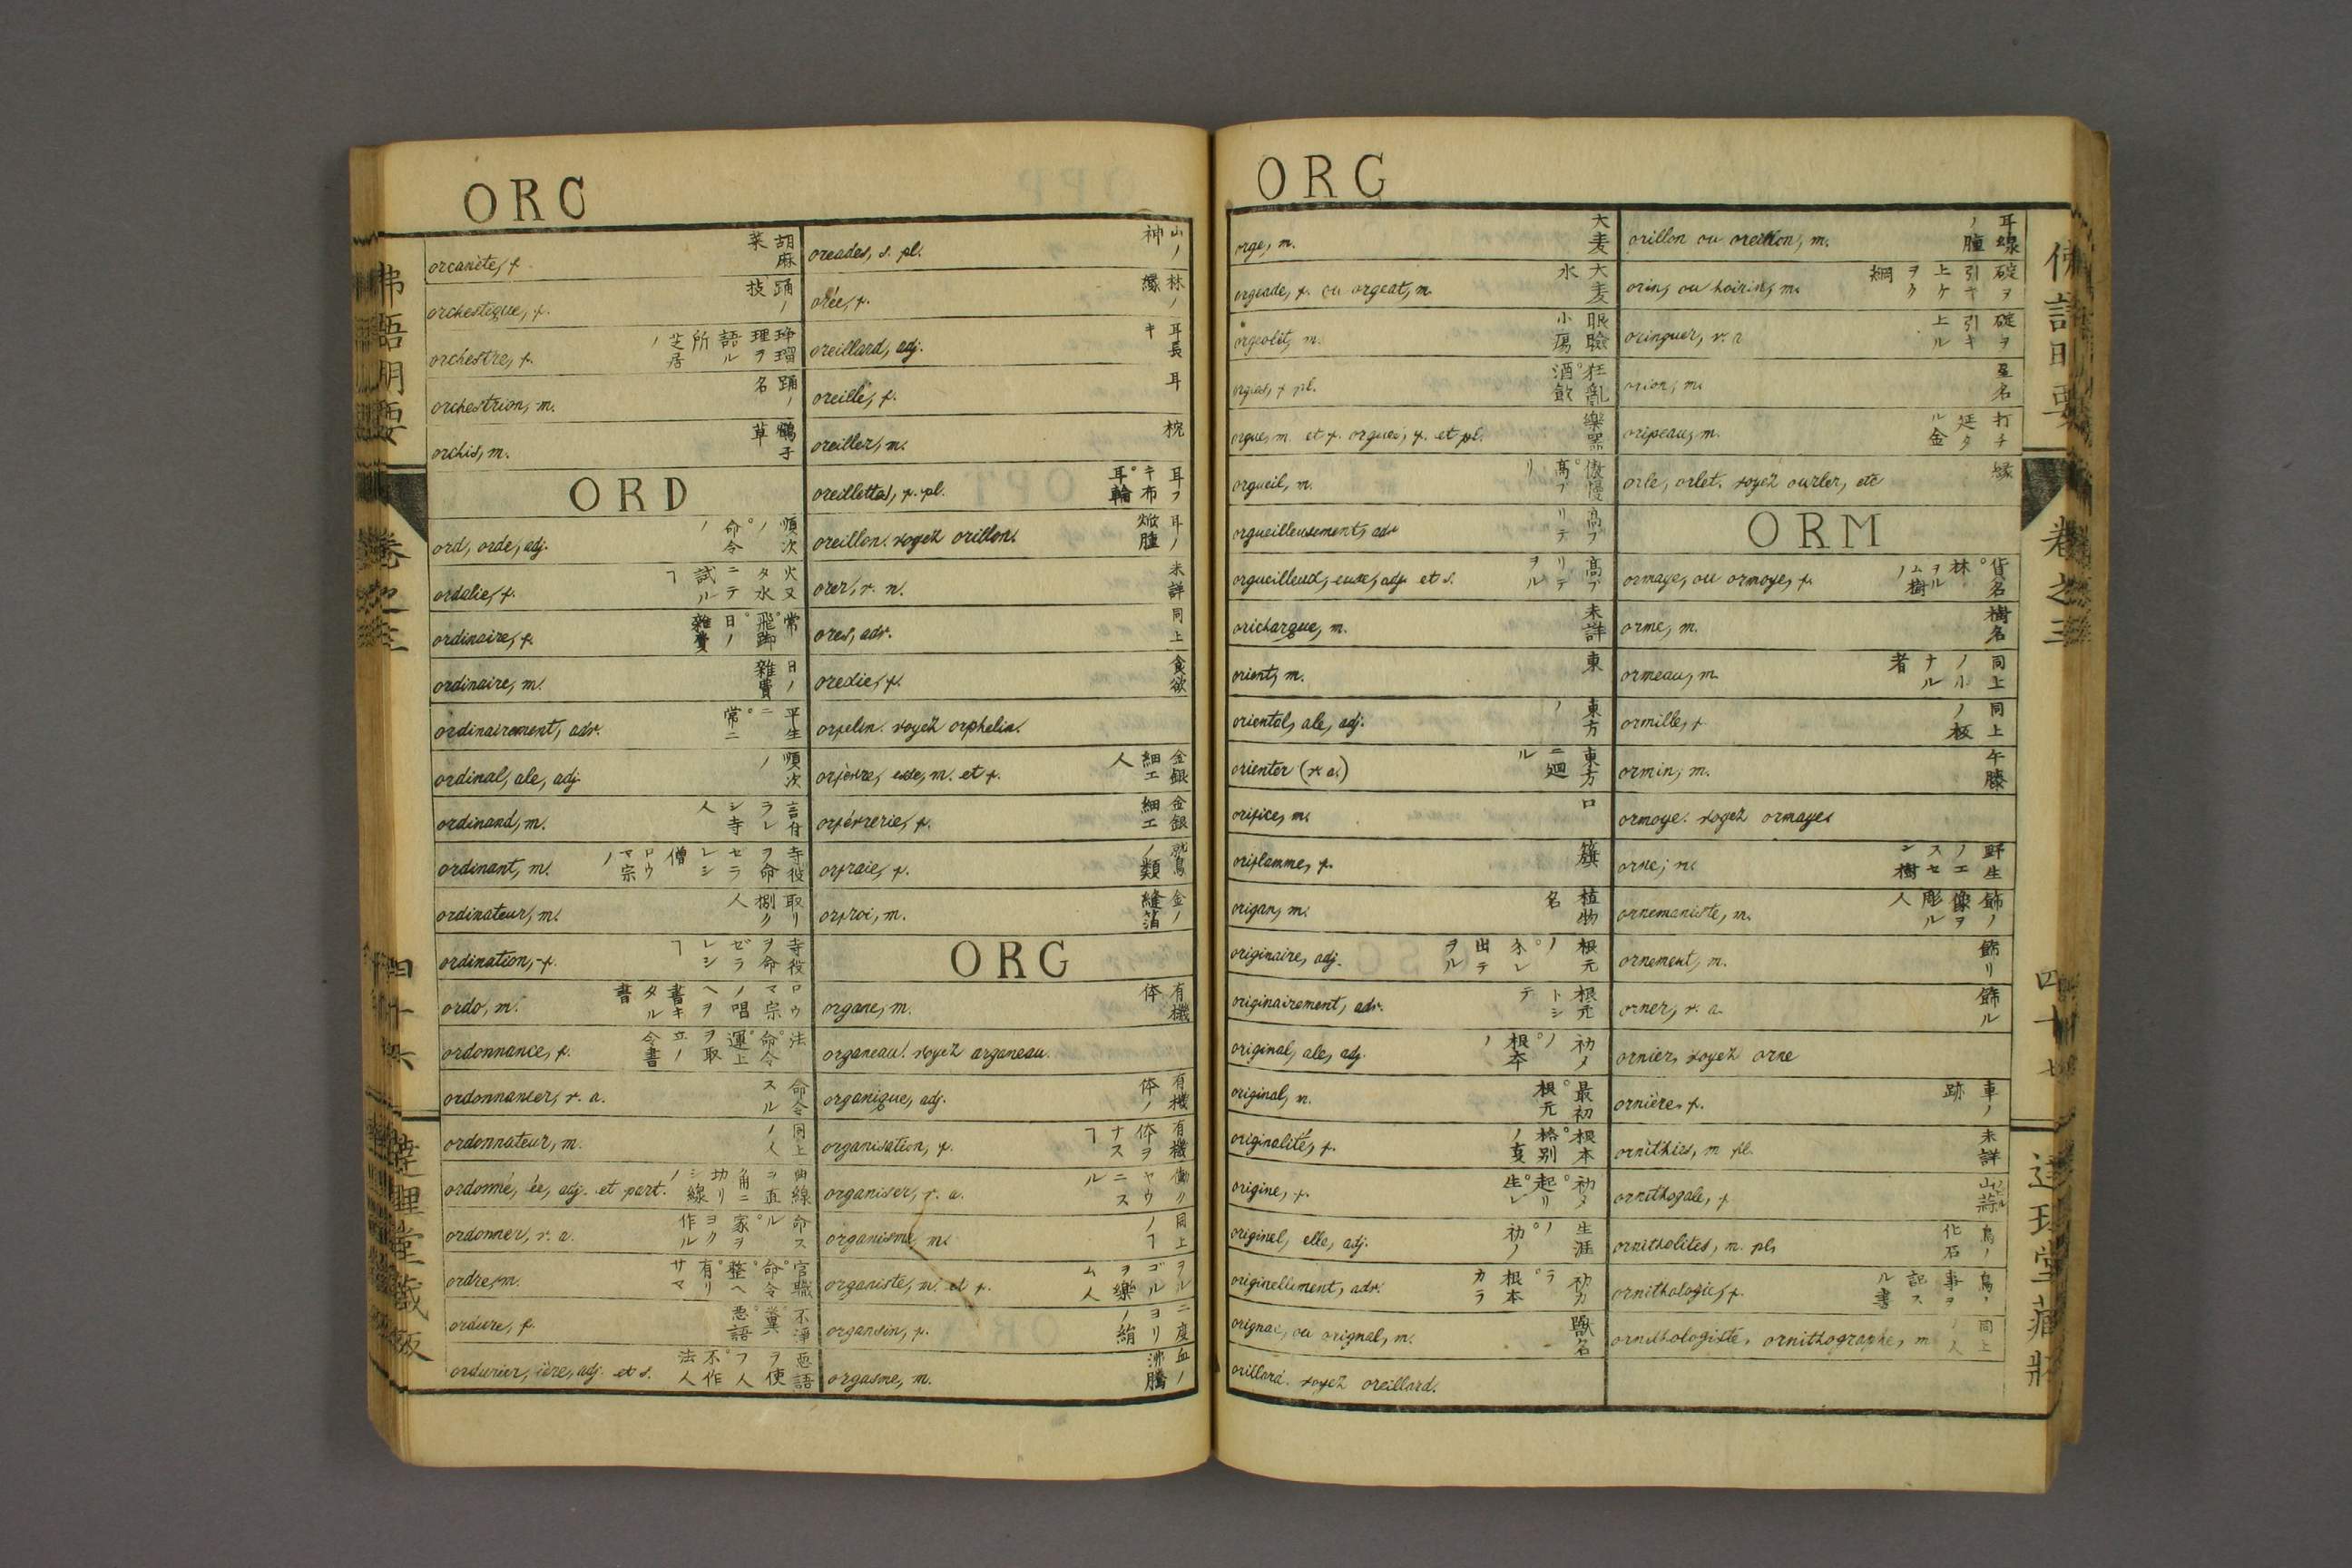 ORC
orcanète, f. 胡麻菜
orchestique, f. 踊ノ技
orchestre, f. 琿瑠理ヲ語ル所ノ芝居
orchestrion, m. 踊ノ名
orchis, m. 草
ORD
ord, orde, adj. 順次ノ。命令ノ
ordalie, f. 火又タ水ニテ試ルヿ
ordinaire, f. 常。飛脚。日ノ雑費
ordinaire, m. 日ノ雑費
ordinairement, adv. 平生ニ。常ニ
ordinal, ale, adj. 順次ノ
ordinand, m. 言付ラレシ寺人
ordinant, m. 寺役ヲ命セラレシ僧
ordinateur, m. 取リ捌ク人
ordination, f. 寺役ヲ命ゼラレシヿ
ordo, m. ロウマ宗ノ唱ヘヲ書キタル書
ordonnance, f. 法。命令。運上ヲ取立ノ令書
ordonnancer, v. a. 命令スル
ordonnateur, m. 同上ノ人
ordonné, ée, adj. et part. 曲線ヲ直角ニ切リシ線ノ
ordonner, v. a. 命スル。家ヲヨク作ル
ordre, m. 官職。命令。整ヘ。有リサマ
ordure, f. 不浄。糞。悪語
ordurier, ière, adj. et s. 悪語ヲ使フ人。不作法人
oreades, s. pl. 山ノ神
orée, f. 林ノ縁
oreillard, adj. 耳長キ
oreille, f. 耳
oreiller, m. 枕
oreillettes, f. pl. 耳フキ布。耳輪
oreillon. voyez orillon. 耳ノ焮腫
orer, v. n. 未詳
ores, adv. 同上
orexie, f. 食欲
orfelin. voyez orphelin.
orfèvre, esse, m. et f. 金銀細工人
orfévrerie, f. 金銀細工
orfraie, f. 鷲ノ類
orfroi, m. 金ノ縫箔
ORG
organe, m. 有機体
organeau. voyez arganeau.
organique, adj. 有機体ノ
organisation, f. 有機体ヲナスヿ
organiser, v. a. 働クヤウニスル
organisme, m. 同上ノヿ
organiste, m. et f. ヲルゴルヲ樂ム人
organsin, f. 二度ヨリノ絹
orgasme, m. 血ノ沸騰
弗語明要
巻之三
四十六
達理堂蔵版
ORG
orge, m. 大麦
orgeade, f. ou orgeat, m. 大麦水
orgeolet, m. 眼瞼小瘍
orgies, f. pl. 狂亂。酒飲
orgue, m. et f. orgues, f. et pl. 樂器
orgueil, m. 傲慢。高ブリ
orgueilleusement, adv. 高ブリテ
orgueilleux, euse, adj. et s. 高ブリテヲル
orichargue, m. 未詳
orient, m. 東
oriental, ale, adj. 東方ノ
orienter (v. a.) 東方ニ廻ル
orifice, m. 口
oriflamme, f. 籏
origan, m. 植物名
originaire, adj. 根元ノ。
originairement, adv. 根元トシテ
original, ale, adj. 初メノ。根本ノ
original, m. 最初。根元
originalité, f. 根本。格別ノ㕝
origine, f. 初メ。起リ。生レ
originel, elle, adj. 生涯ノ。初ノ
originellement, adv. 初カラ。根本カラ
orignac, ou orignal, m. 獣名
orillard. voyez oreillard.
orillon ou oreillon, m. 耳線ノ腫
orin, ou hoirin, m. 碇ヲ引キ上ケヲク綱
oringuer, v. a. 碇ヲ引キ上ル
orion, m. 星名
oripeau, m. 打チ延タル金
orle, orlet. voyez ourler, etc 縁
ORM
ormaye, ou ormoye, f.
orme, m. 樹名
ormeau, m. 同上ノ小ナル者
ormille, f. 同上ノ板
ormin, m. 午膝
ormoye. voyez ormaye.
orne, m. 野生ノ
ornemaniste, m. 飾ノ像ヲ彫ル人
ornement, m. 飾リ
orner, v. a. 飾ル
ornier, voyez orne
ornière, f. 車ノ跡
ornithies, m. pl. 未詳
ornithogale, f. 山蒜
ornitholites, m. pl. 鳥ノ化石
ornithologie, f. 鳥ノ事ヲ記スル書
ornithologiste, ornithographe, m 同上ノ人
佛語明要
巻之三
四十七
達理堂蔵版